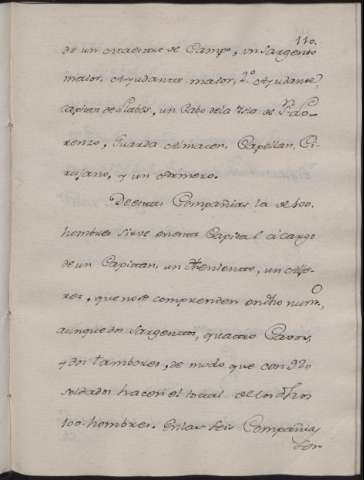 110.
de un Maestre de Campo, un Sargento
maior, Ayudante maior, 2º Ayudante,
Capitan de Llabes, un Cabo de la Isla de Sn Lo-
renzo, Guarda Almacen, Capellan, Ci-
rujano, y un Armero.
De estas Compañias la de 100.
hombres sirve en esta Capital á cargo
de un Capitan, un Theniente, un Alfe-
rez, que no se comprenden en dho numº,
aunque dos Sargentos, quatro Cavos,
y dos tambores, de modo que con 92
soldados hacen el total de los dhos
100. hombres. En las seis Compañias